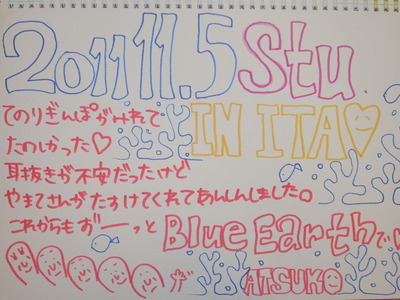 2011.11.5 Stu
IN ITA
てのりぎんぽがみれて
たのしかった♡
耳抜きが不安だったけど
やまてさんがたすけてくれてあんしんしました。
これからもずーっと Blue Earthで
ATSUKO